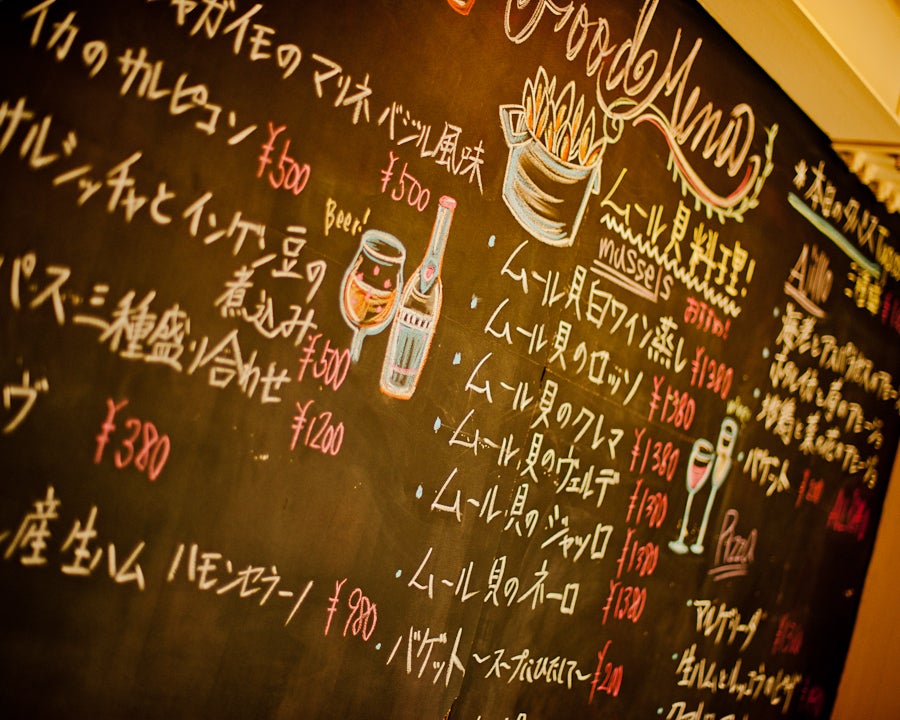 Good Menu
ジャガイモのマリネ バジル風味
¥500
イカのサルピコン
¥500
サルシッチャとインゲン豆の
煮込み
¥500
Beer!
パス三種盛り合わせ
¥1200
ヴ
¥380
産 生ハム ハモンセラーノ ¥980
ムール貝料理!
mussels
・ムール貝白ワイン蒸し ¥1380
・ムール貝のロッソ ¥1380
・ムール貝のクレマ ¥1380
・ムール貝のヴェルデ ¥1380
・ムール貝のジャッロ ¥1380
・ムール貝のネーロ ¥1380
・バゲット ～スープにひたして～ ¥200
*本日のタパス
Ajillo
・バゲット
Pizza
・マルゲリータ
・生ハムと